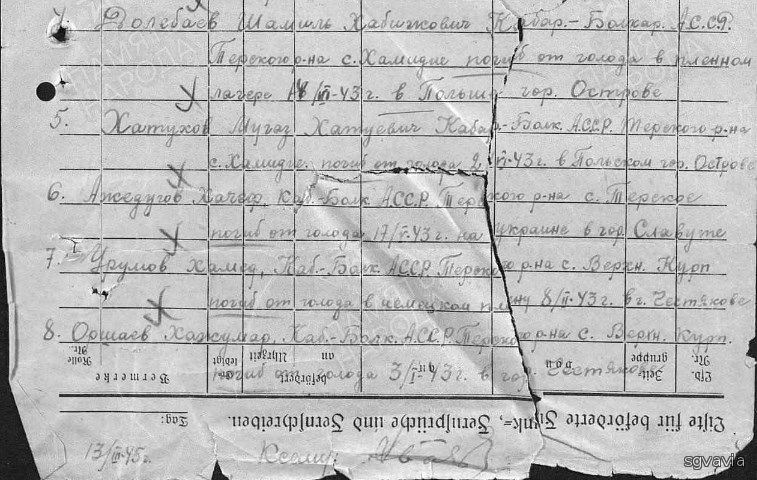 Долебаев Шамиль Хабижкович Кабар.-Балкар. А.С.С.Р.
Терского р-на с. Хамидие погиб от голода в пленном
лагере 18/II-43 г. в Польше гор. Острове
5. Хатухов Мугаз Хатуевич Кабар.-Балк. А.С.С.Р. Терского р-на
с. Хамидие. погиб от голода 2 43 г. в Польском гор. Острове
6. Ажедугов Хачеф, Каб.-Балк А.С.С.Р. Терского р-на с. Терское
погиб от голода 17/II-43 г. на украине в гор. Славуте
7. Урумов Хамед, Каб.-Балк. А.С.С.Р. Терского р-на с. Верхн. Курп
погиб от голода в немецком плену 8/II-43 г. в г. Чистякове
8. Оршаев Хажумар, Каб.-Балк. А.С.С.Р. Терского р-на с. Верхн. Курп.
погиб от голода 3/I-43 г. в гор. Чистякове
Lfd. Nr.
Zeit-gruppe
an
befördert Uhrzeit
erledigt
Bermerke
Rolle Nr.
Liste für beförderte Funk-, Fernsprüche und Fernschreiben.
Tag:
13/III-45 г.
sgvavia